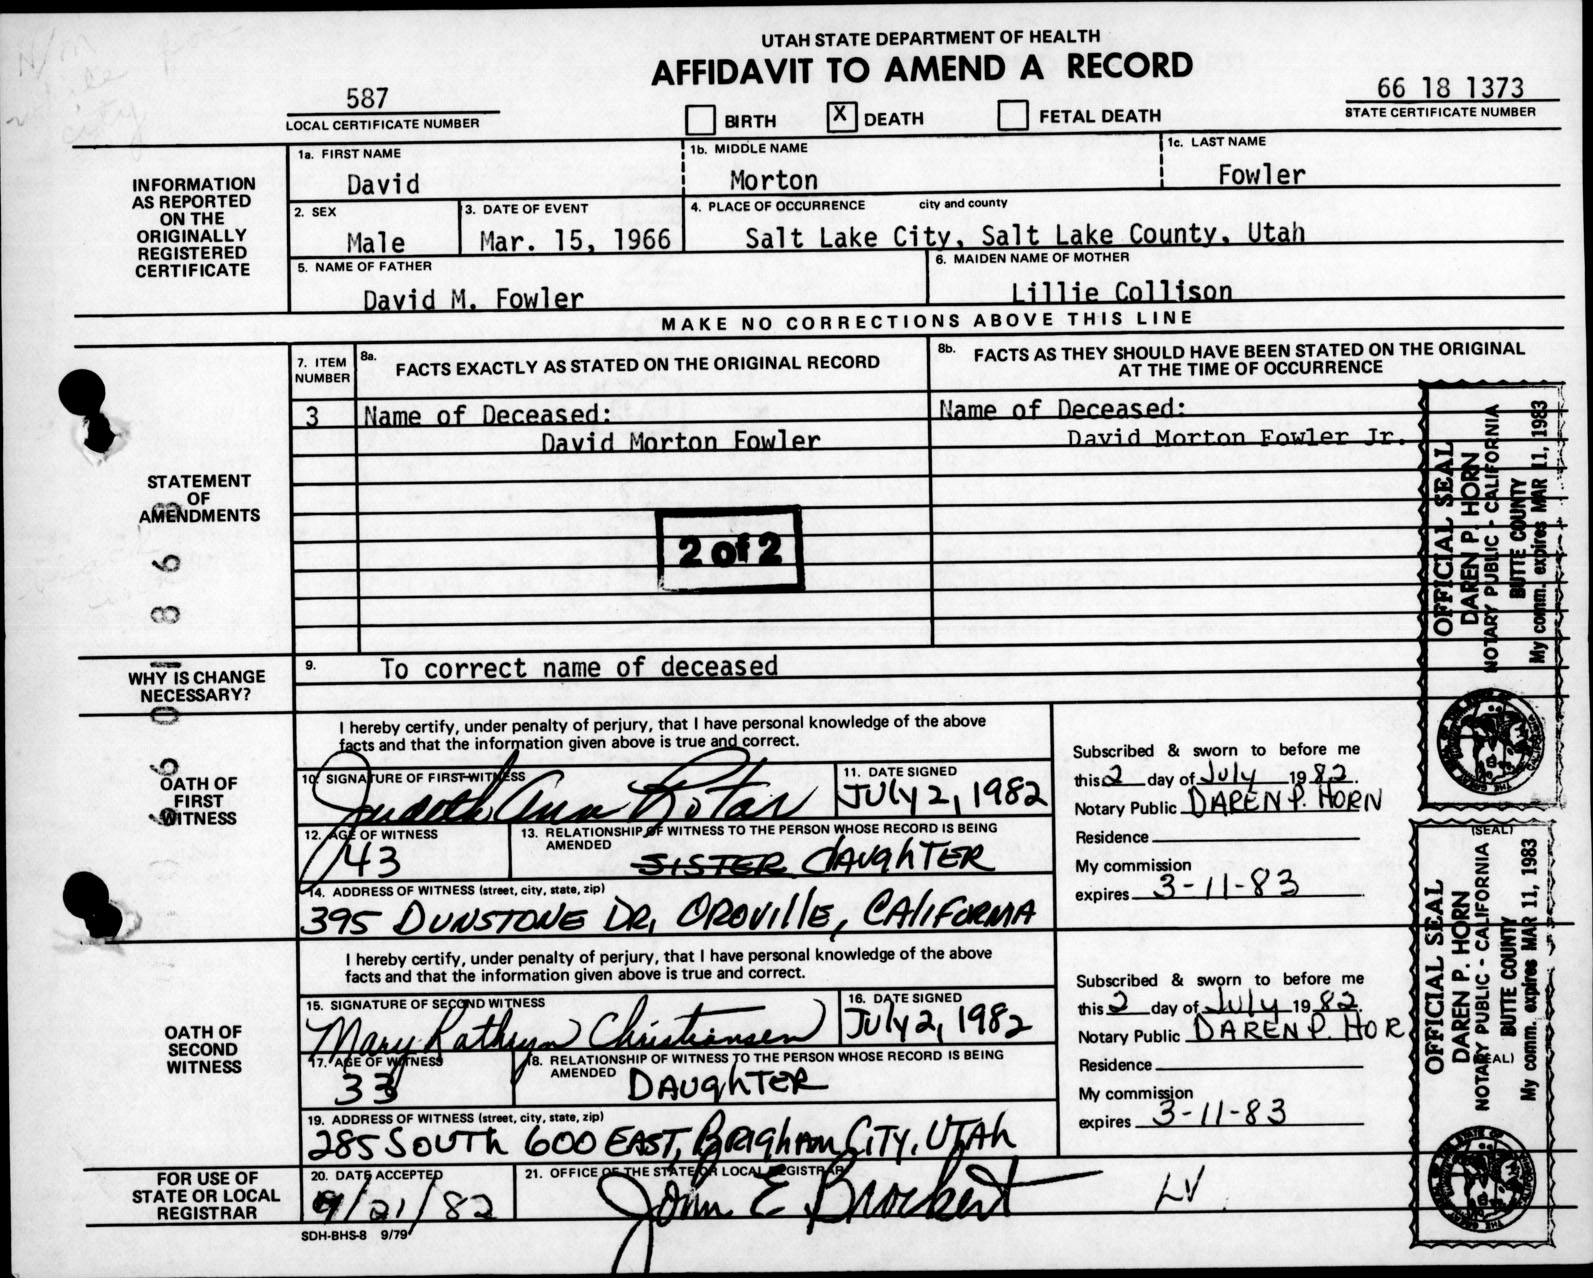 UTAH STATE DEPARTMENT OF HEALTH
AFFIDAVIT TO AMEND A RECORD
587
LOCAL CERTIFICATE NUMBER
BIRTH
X DEATH
FETAL DEATH
66 18 1373
STATE CERTIFICATE NUMBER
INFORMATION
AS REPORTED
ON THE
ORIGINALLY
REGISTERED
CERTIFICATE
1a. FIRST NAME
David
1b. MIDDLE NAME
Morton
1c. LAST NAME
Fowler
2. SEX
Male
3. DATE OF EVENT
Mar. 15, 1966
4. PLACE OF OCCURRENCE city and county
Salt Lake City, Salt Lake County, Utah
5. NAME OF FATHER
David M. Fowler
6. MAIDEN NAME OF MOTHER
Lillie Collison
MAKE NO CORRECTIONS ABOVE THIS LINE
STATEMENT
OF
AMENDMENTS
7. ITEM
NUMBER
8a.
FACTS EXACTLY AS STATED ON THE ORIGINAL RECORD
8b.
FACTS AS THEY SHOULD HAVE BEEN STATED ON THE ORIGINAL
AT THE TIME OF OCCURRENCE
3
Name of Deceased:
David Morton Fowler
Name of Deceased:
David Morton Fowler Jr.
2 of 2
WHY IS CHANGE
NECESSARY?
9.
To correct name of deceased
OATH OF
FIRST
WITNESS
I hereby certify, under penalty of perjury, that I have personal knowledge of the above
facts and that the information given above is true and correct.
10. SIGNATURE OF FIRST WITNESS
Judith Ann Rotar
11. DATE SIGNED
JULY 2, 1982
12. AGE OF WITNESS
43
13. RELATIONSHIP OF WITNESS TO THE PERSON WHOSE RECORD IS BEING
AMENDED
SISTER DAUGHTER
14. ADDRESS OF WITNESS (street, city, state, zip)
395 DUNSTONE DR, OROVILLE, CALIFORNIA
Subscribed & sworn to before me
this 2 day of July 1982.
Notary Public DAREN P. HORN
Residence
My commission
expires 3-11-83
(SEAL)
OATH OF
SECOND
WITNESS
I hereby certify, under penalty of perjury, that I have personal knowledge of the above
facts and that the information given above is true and correct.
15. SIGNATURE OF SECOND WITNESS
Mary Kathryn Christiansen
16. DATE SIGNED
July 2, 1982
17. AGE OF WITNESS
33
18. RELATIONSHIP OF WITNESS TO THE PERSON WHOSE RECORD IS BEING
AMENDED
DAUGHTER
19. ADDRESS OF WITNESS (street, city, state, zip)
285 SOUTH 600 EAST, BRIGHAM CITY, UTAH
Subscribed & sworn to before me
this 2 day of July 1982.
Notary Public DAREN P. HOR
Residence
My commission
expires 3-11-83
FOR USE OF
STATE OR LOCAL
REGISTRAR
20. DATE ACCEPTED
9/21/82
21. OFFICE OF THE STATE OR LOCAL REGISTRAR
John E Brockert
LV
SDH-BHS-8 9/79
OFFICIAL SEAL
DAREN P. HORN
NOTARY PUBLIC - CALIFORNIA
BUTTE COUNTY
My comm. expires MAR 11, 1983
OFFICIAL SEAL
DAREN P. HORN
NOTARY PUBLIC - CALIFORNIA
BUTTE COUNTY
My comm. expires MAR 11, 1983